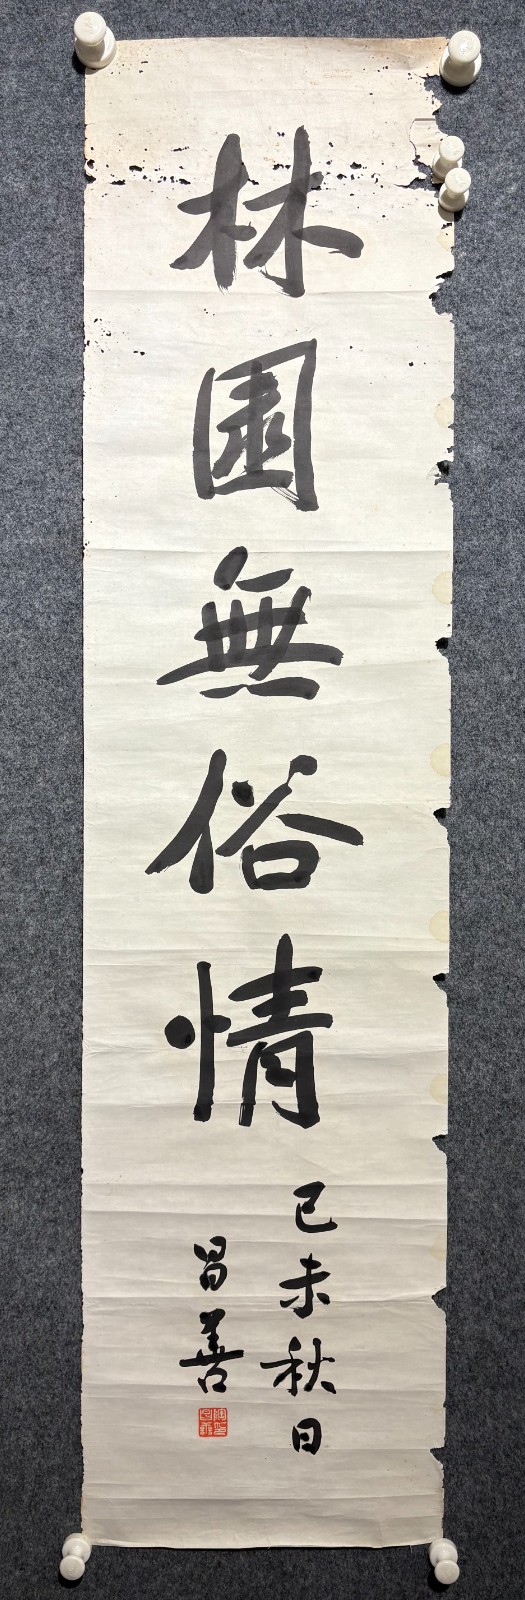 林園無俗情
己未秋日
昌善